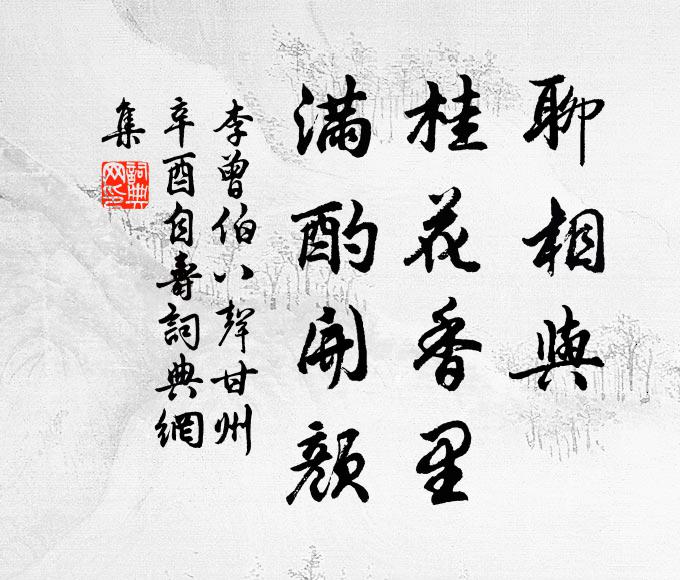 聊相與
桂花香里
滿酌開顏
李曾伯八聲甘州
辛酉自壽詞典網
集
詞典
网印